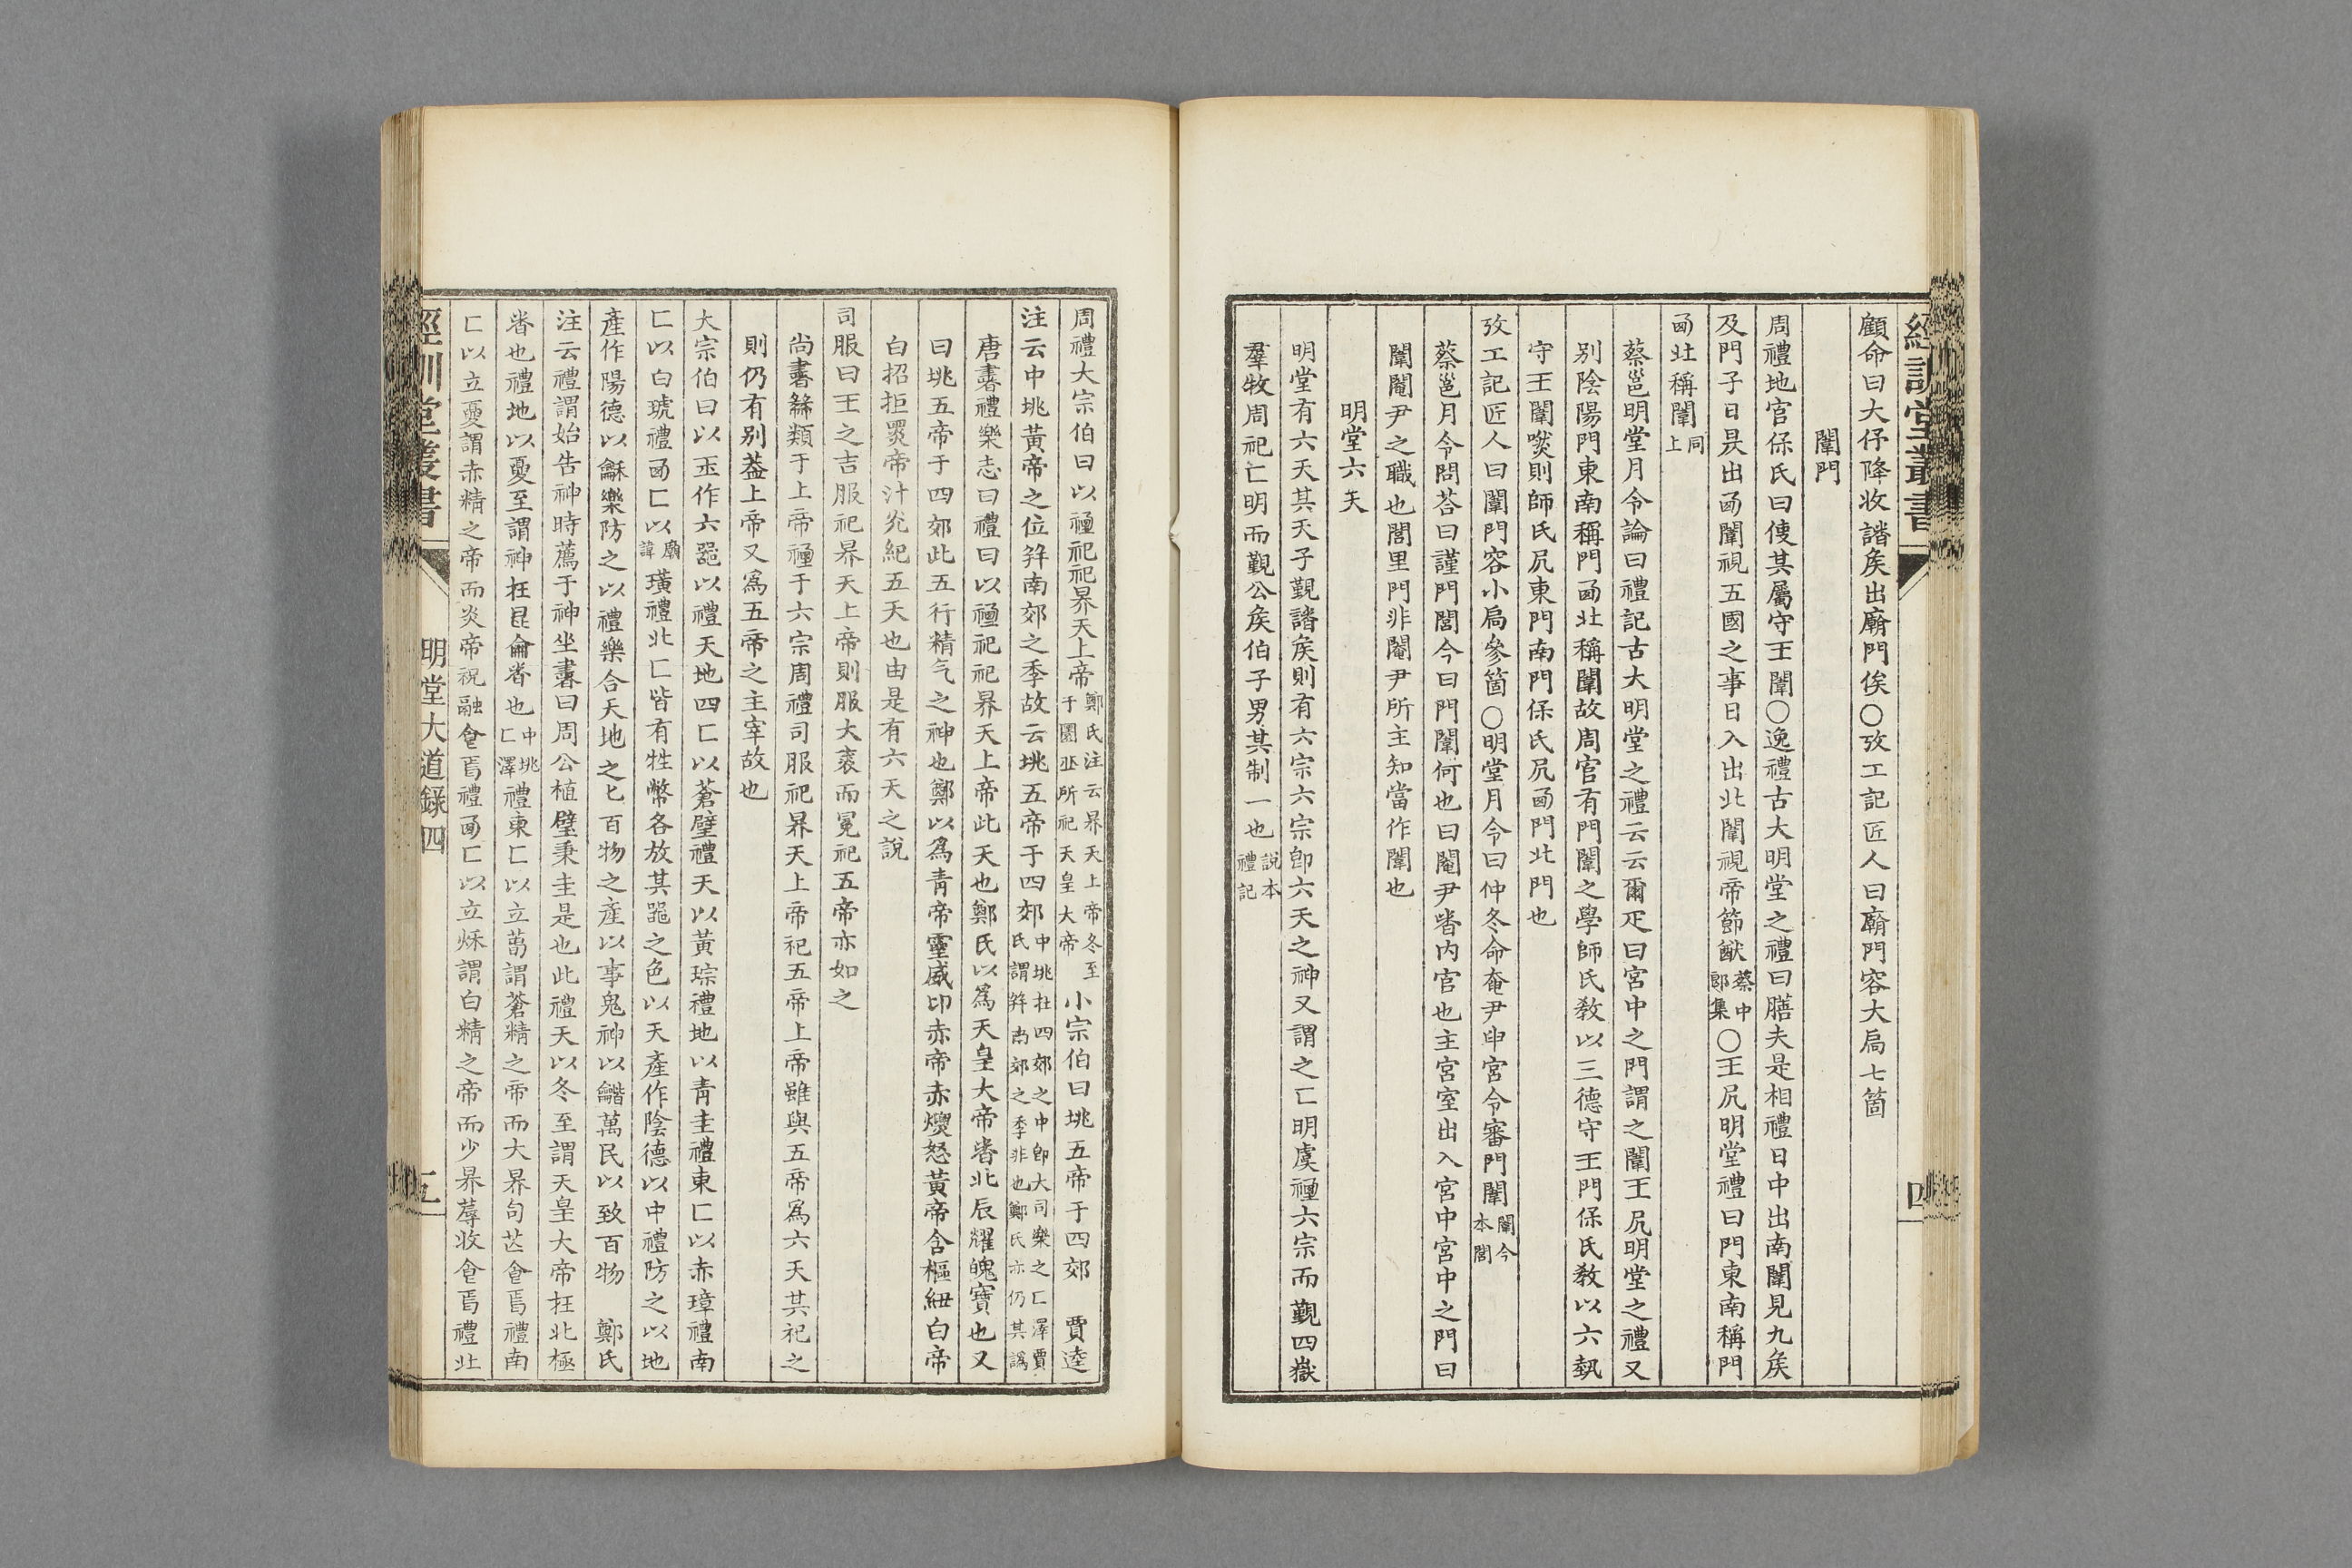 經訓堂叢書
四
顧命曰大仔降收諸矦出廟門俟〇攷工記匠人曰廟門容大扃七箇
闈門
周禮地官保氏曰使其屬守王闈〇逸禮古大明堂之禮曰膳夫是相禮日中出南闈見九矦
及門子日昃出㢴闈視五國之事日入出北闈視帝節猷蔡中郎集〇王凥明堂禮曰門東南稱門
㢴北稱闈同上
蔡邕明堂月令論曰禮記古大明堂之禮云云爾疋曰宮中之門謂之闈王凥明堂之禮又
別陰陽門東南稱門㢴北稱闈故周官有門闈之學師氏教以三德守王門保氏教以六埶
守王闈㷼則師氏凥東門南門保氏凥㢴門北門也
攷工記匠人曰闈門容小扃參箇〇明堂月令曰仲冬命奄尹申宮令審門闈闈今本閭
蔡邕月令問荅曰謹門閭今曰門闈何也曰閹尹者內官也主宮室出入宮中宮中之門曰
闈閹尹之職也閭里門非閹尹所主知當作闈也
明堂六天
明堂有六天其天子覲諸矦則有六宗六宗卽六天之神又謂之匚明虞禋六宗而覲四嶽
羣牧周祀匚明而覲公矦伯子男其制一也說本禮記
周禮大宗伯曰以禋祀祀昦天上帝鄭氏注云昦天上帝冬至于圜丠所祀天皇大帝小宗伯曰垗五帝于四郊 賈逵
注云中垗黃帝之位幷南郊之季故云垗五帝于四郊中垗在四郊之中卽大司樂之匚澤賈氏謂幷南郊之季非也鄭氏亦仍其譌
唐書禮樂志曰禮曰以禋祀祀昦天上帝此天也鄭氏以爲天皇大帝者北辰耀魄寶也又
曰垗五帝于四郊此五行精气之神也鄭以爲青帝靈威卬赤帝赤熛怒黃帝含樞紐白帝
白招拒黑帝汁光紀五天也由是有六天之說
司服曰王之吉服祀昦天上帝則服大裘而冕祀五帝亦如之
尚書䋛類于上帝禋于六宗周禮司服祀昦天上帝祀五帝上帝雖與五帝爲六天其祀之
則仍有別葢上帝又爲五帝之主宰故也
大宗伯曰以玉作六器以禮天地四匚以蒼璧禮天以黃琮禮地以青圭禮東匚以赤璋禮南
匚以白琥禮㢴匚以廟諱璜禮北匚皆有牲幣各放其器之色以天產作陰德以中禮防之以地
產作陽德以龢樂防之以禮樂合天地之匕百物之產以事鬼神以龤萬民以致百物 鄭氏
注云禮謂始告神時薦于神坐書曰周公植璧秉圭是也此禮天以冬至謂天皇大帝在北極
者也禮地以夏至謂神在昆侖者也中垗匚澤禮東匚以立萅謂蒼精之帝而大昦句芒食焉禮南
匚以立夏謂赤精之帝而炎帝祝融食焉禮㢴匚以立秌謂白精之帝而少昦蓐收食焉禮北
經訓堂叢書
明堂大道錄四
五